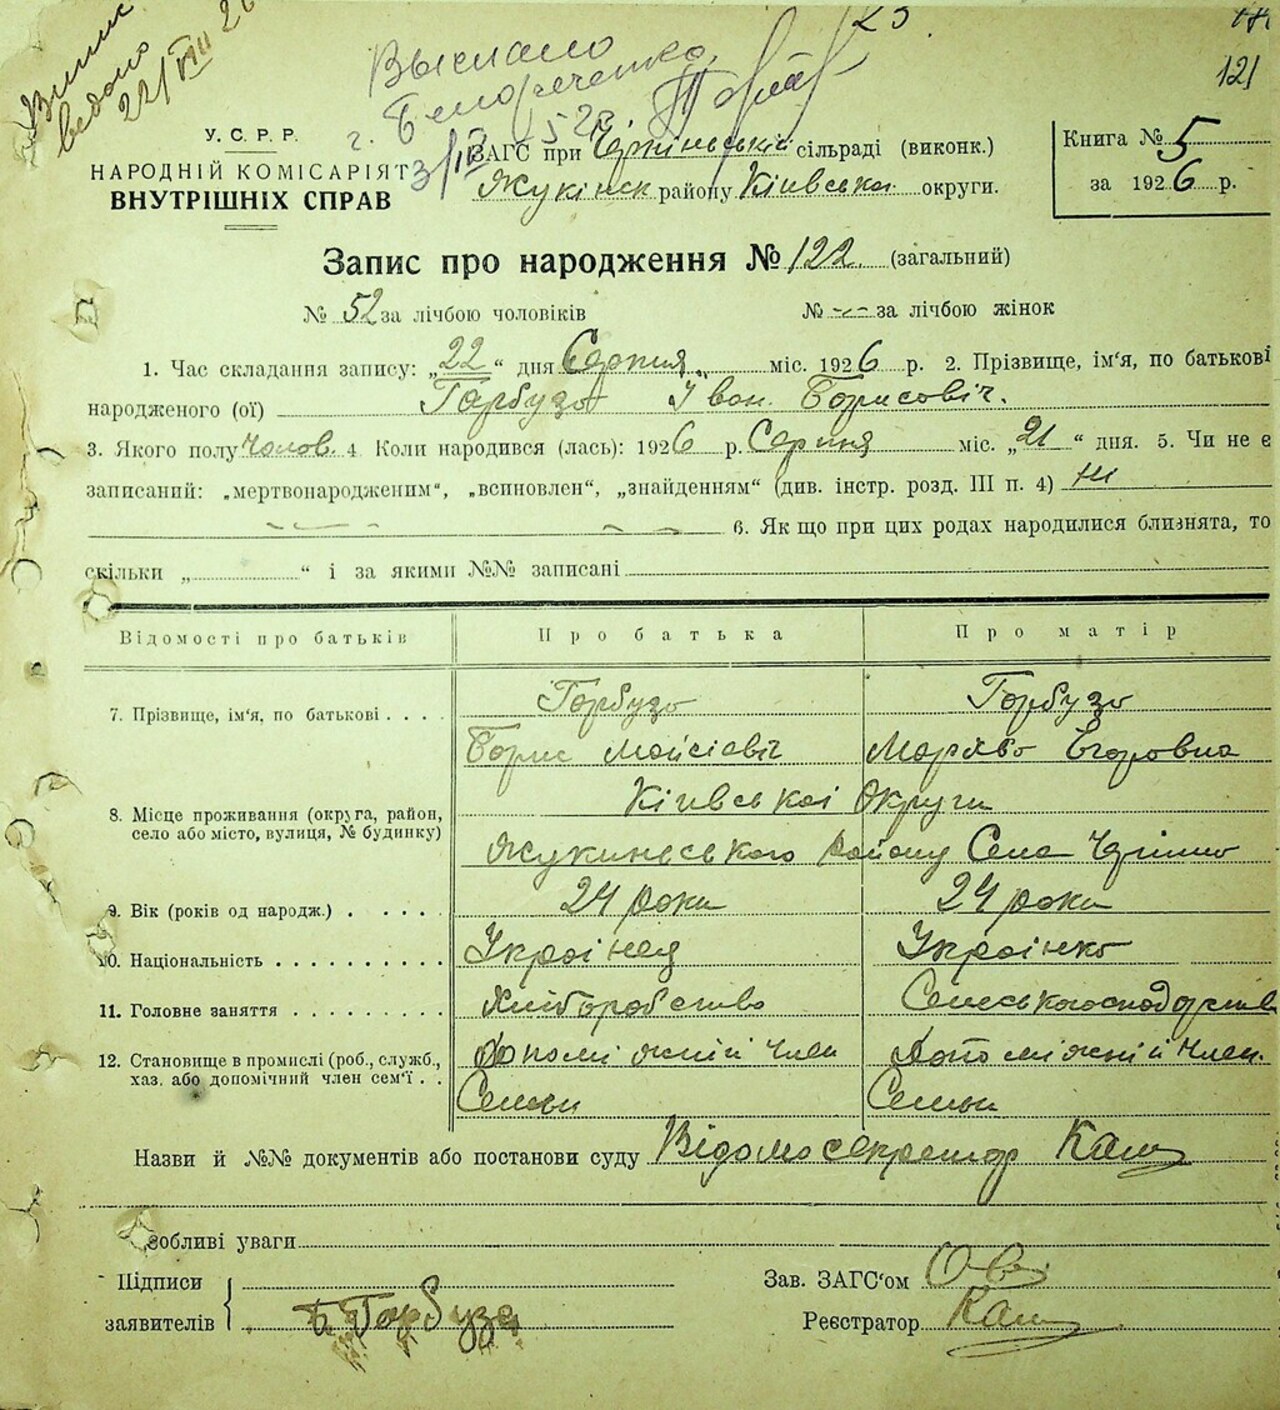 Выслано
г. Белореченка
22/VIII 26
25
121
У. С. Р. Р.
НАРОДНІЙ КОМІСАРІЯТ
ВНУТРІШНІХ СПРАВ
ЗАГС при Чернінській сільраді (виконк.)
Жукінск району Київської округи.
Книга № 5
за 1926 р.
Запис про народження № 122 (загальний)
№ 52 за лічбою чоловіків № -- за лічбою жінок
1. Час складання запису: „22“ дня Серпня міс. 1926 р. 2. Прізвище, ім‘я, по батькові
народженого (ої) Гарбуза Іван Борисовіч.
3. Якого полу Чолов. 4 Коли народився (лась): 1926 р. Серпня міс. „21“ дня. 5. Чи не є
записаний: „мертвонародженим“, „всиновлен“, „знайденням“ (див. інстр. розд. III п. 4) Ні
6. Як що при цих родах народилися близнята, то
скільки „ “ і за якими №№ записані
Відомості про батьків Про батька Про матір
7. Прізвище, ім‘я, по батькові . . . . Гарбуза Гарбуза
Борис Мойсіовіч Егоровна
Київської Округи
8. Місце проживання (округа, район,
село або місто, вулиця, № будинку)
Жукинського Району Села
9. Вік (років од народж.) . . . . . 24 роки 24 роки
10. Національність . . . . . . . . . . Українец Українка
11. Головне заняття . . . . . . . . . Хліборобство
12. Становище в промислі (роб., служб., Допоміжній член Допоміжній член.
хаз. або допомічний член сем‘ї . . Семьи Семьи
Назви й №№ документів або постанови суду
зобливі уваги
Підписи
заявителів
Б Гарбуза
Зав. ЗАГС‘ом
Реєстратор